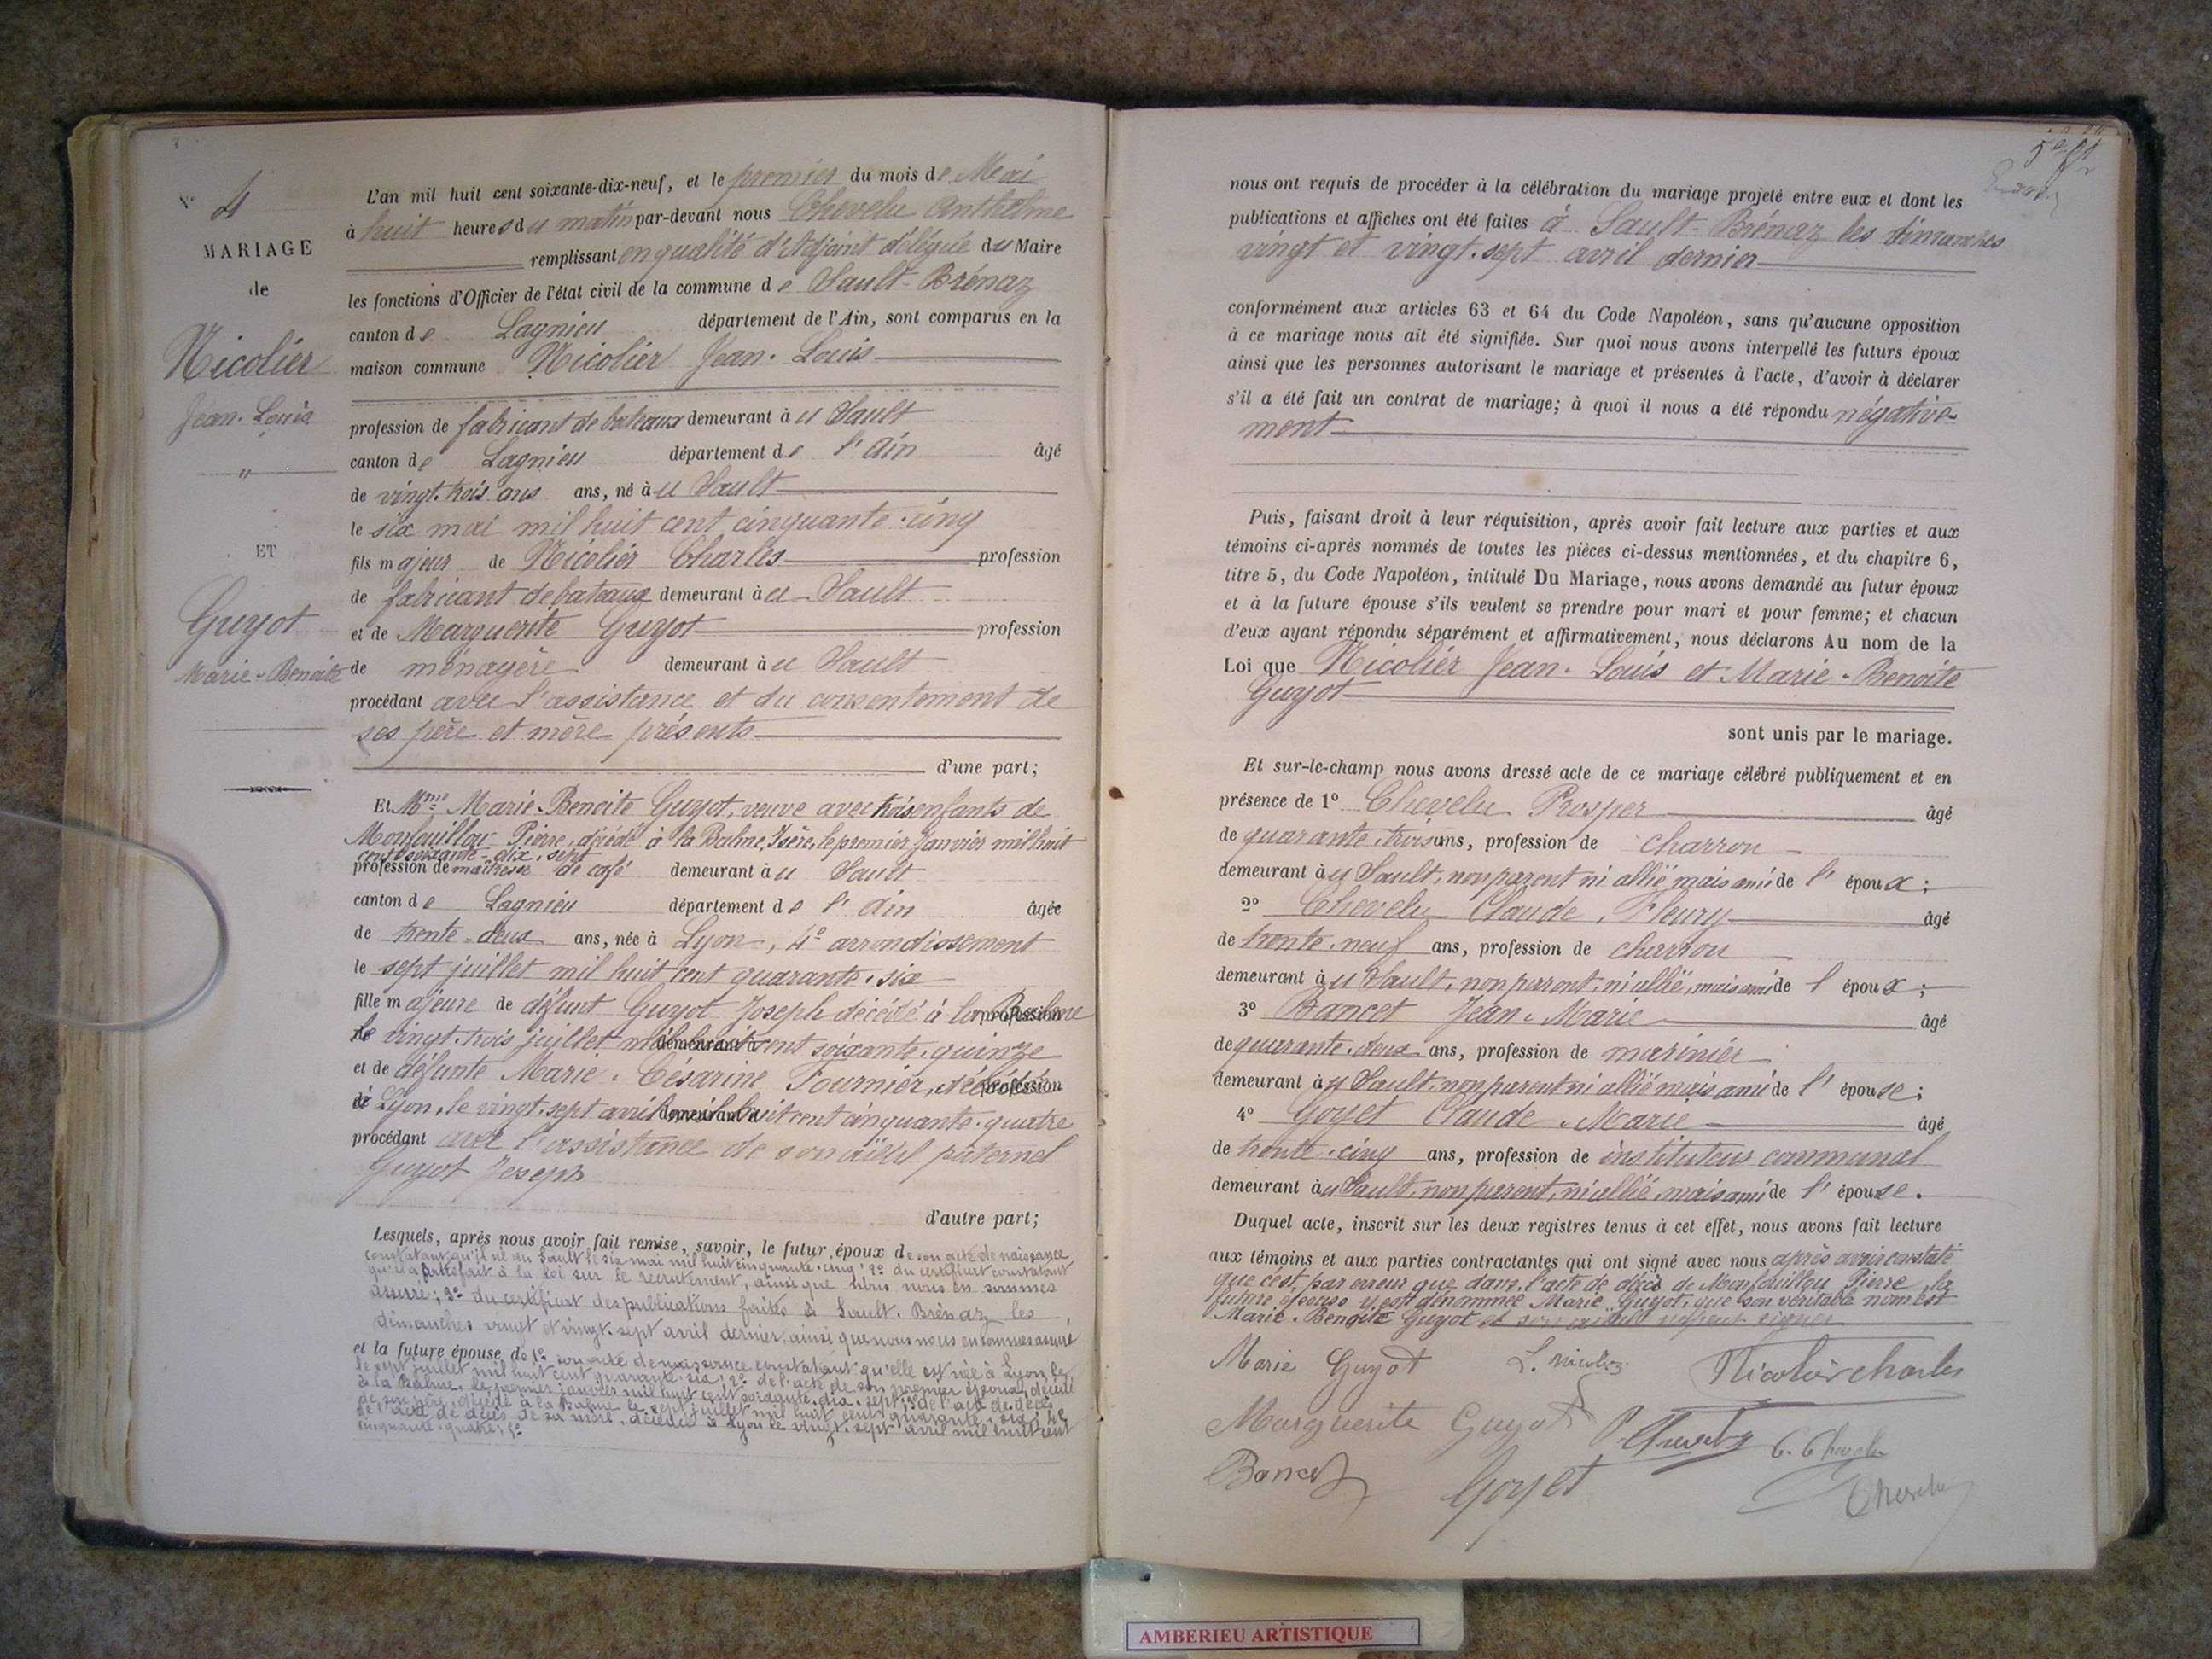 N° 4
MARIAGE
de
Nicolier
Jean-Louis
"
ET
Guyot
Marie-Benoite
L'an mil huit cent soixante-dix-neuf, et le premier du mois de Mai
à huit heures du matin par-devant nous Chevelu Anthelme
remplissant en qualité d'Adjoint délégué du Maire
les fonctions d'Officier de l'état civil de la commune de Sault-Brénaz
canton de Lagnieu département de l'Ain, sont comparus en la
maison commune Nicolier Jean-Louis
profession de fabricant de bateaux demeurant à u Sault
canton de Lagnieu département de l'Ain âgé
de vingt-trois ans ans, né à u Sault
le six mai mil huit cent cinquante-cinq
fils majeur de Nicolier Charles profession
de fabricant de bateaux demeurant à u Sault
et de Marguerite Guyot profession
de ménagère demeurant à u Sault
procédant avec l'assistance et du consentement de
ses père et mère présents
d'une part;
Et Mme Marie-Benoite Guyot, veuve avec trois enfants de
Monfouillou Pierre, décédé à la Balme, Isère, le premier Janvier mil huit
cent soixante-dix-sept
profession de maîtresse de café demeurant à u Sault
canton de Lagnieu département de l'Ain âgée
de trente-deux ans, née à Lyon, 4e arrondissement
le sept juillet mil huit cent quarante-six
fille majeure de défunt Guyot Joseph décédé à la Balme profession
de le vingt-trois juillet mil huit cent soixante-quinze demeurant à
et de défunte Marie-Césarine Fournier, décédée profession
de à Lyon, le vingt-sept avril mil huit cent cinquante-quatre demeurant à
procédant avec l'assistance de son aïeul paternel
Guyot Joseph
d'autre part;
Lesquels, après nous avoir fait remise, savoir, le futur époux de son acte de naissance
constatant qu'il né au Sault le six mai mil huit cinquante-cinq; 2° du certificat constatant
qu'il a satisfait à la loi sur le recrutement, ainsi que nous nous en sommes
assuré; 3° du certificat des publications faites à Sault-Brénaz les
dimanches vingt et vingt-sept avril dernier, ainsi que nous nous en sommes assuré
et la future épouse de 1° son acte de naissance constatant qu'elle est née à Lyon le
sept juillet mil huit cent quarante-six; 2° de l'acte de son premier époux, décédé
à la Balme, le premier janvier mil huit cent soixante-dix-sept; 3° de l'acte de décès
de son père, décédé à la Balme le sept juillet mil huit cent quarante-six; 4°
de l'acte de décès de sa mère, décédée à Lyon le vingt-sept avril mil huit cent
cinquante-quatre; 5°
5e ft
nous ont requis de procéder à la célébration du mariage projeté entre eux et dont les
publications et affiches ont été faites à Sault-Brénaz les dimanches
vingt et vingt-sept avril dernier
conformément aux articles 63 et 64 du Code Napoléon, sans qu'aucune opposition
à ce mariage nous ait été signifiée. Sur quoi nous avons interpellé les futurs époux
ainsi que les personnes autorisant le mariage et présentes à l'acte, d'avoir à déclarer
s'il a été fait un contrat de mariage; à quoi il nous a été répondu négative-
ment
Puis, faisant droit à leur réquisition, après avoir fait lecture aux parties et aux
témoins ci-après nommés de toutes les pièces ci-dessus mentionnées, et du chapitre 6,
titre 5, du Code Napoléon, intitulé Du Mariage, nous avons demandé au futur époux
et à la future épouse s'ils veulent se prendre pour mari et pour femme; et chacun
d'eux ayant répondu séparément et affirmativement, nous déclarons Au nom de la
Loi que Nicolier Jean-Louis et Marie-Benoite
Guyot
sont unis par le mariage.
Et sur-le-champ nous avons dressé acte de ce mariage célébré publiquement et en
présence de 1° Chevelu Prosper âgé
de quarante-trois ans, profession de charron
demeurant à u Sault, non parent ni allié mais ami de l'époux;
2° Chevelu Claude, Fleury âgé
de trente-neuf ans, profession de charron
demeurant à u Sault, non parent, ni allié, mais ami de l'époux;
3° Bancet Jean-Marie âgé
de quarante-deux ans, profession de marinier
demeurant à u Sault, non parent ni allié mais ami de l'épouse;
4° Goyet Claude-Marie âgé
de trente-cinq ans, profession de instituteur communal
demeurant à u Sault, non parent, ni allié, mais ami de l'épouse.
Duquel acte, inscrit sur les deux registres tenus à cet effet, nous avons fait lecture
aux témoins et aux parties contractantes qui ont signé avec nous après avoir constaté
que c'est par erreur que dans l'acte de décès de Monfouillou Pierre, la
future épouse y est dénommée Marie Guyot, que son véritable nom est
Marie-Benoite Guyot
Marie Guyot L. Nicolier Nicolier charles
Marguerite Guyot P. Chevelu C. Chevelu
Bancet Goyet Chevelu
AMBERIEU ARTISTIQUE